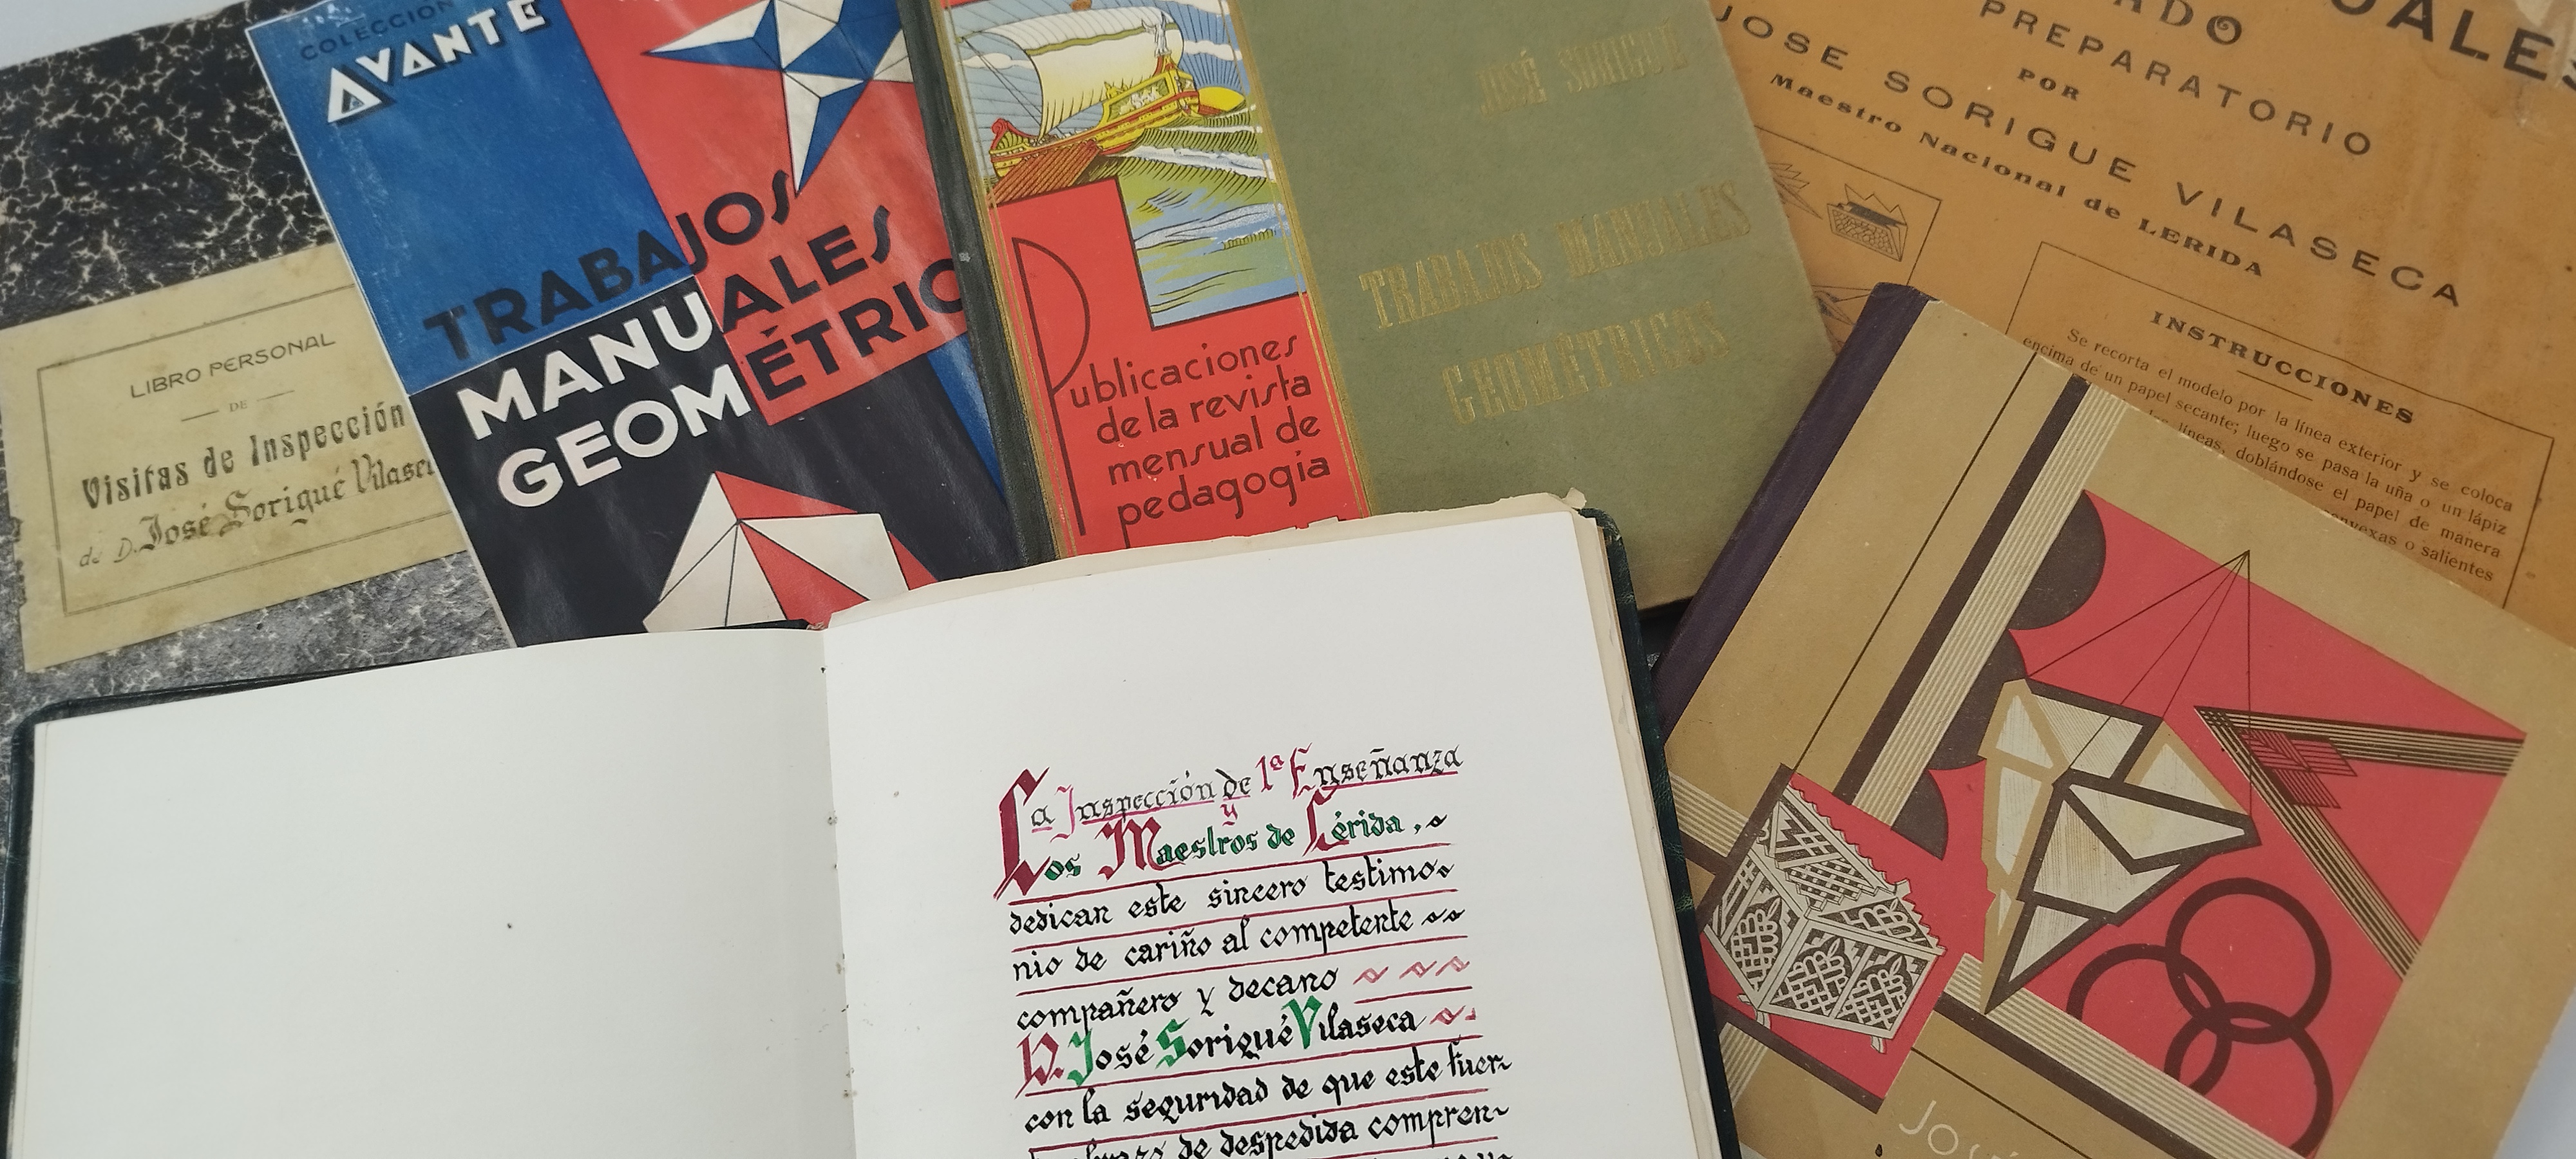 LIBRO PERSONAL
DE
Visitas de Inspección
de D. José Sorigué
COLECCIÓN
AVANTE
TRABAJOS
MANUALES
JOSÉ SORIGUÉ
TRABAJOS MANUALES
GEOMÉTRICOS
Publicaciones
de la revista
mensual de
pedagogía
PREPARATORIO
POR
JOSE SORIGUE VILASECA
Maestro Nacional de LERIDA
INSTRUCCIONES
Se recorta el modelo por la línea exterior y se coloca
encima de un papel secante; luego se pasa la uña o un lápiz
líneas, doblándose el papel de manera
o salientes
La Inspección de 1ª Enseñanza
y
Los Maestros de Lérida,
dedican este sincero testimo-
nio de cariño al competente
compañero y decano
D. José Sorigué Vilaseca
con la seguridad de que este fuer-
de despedida compren-